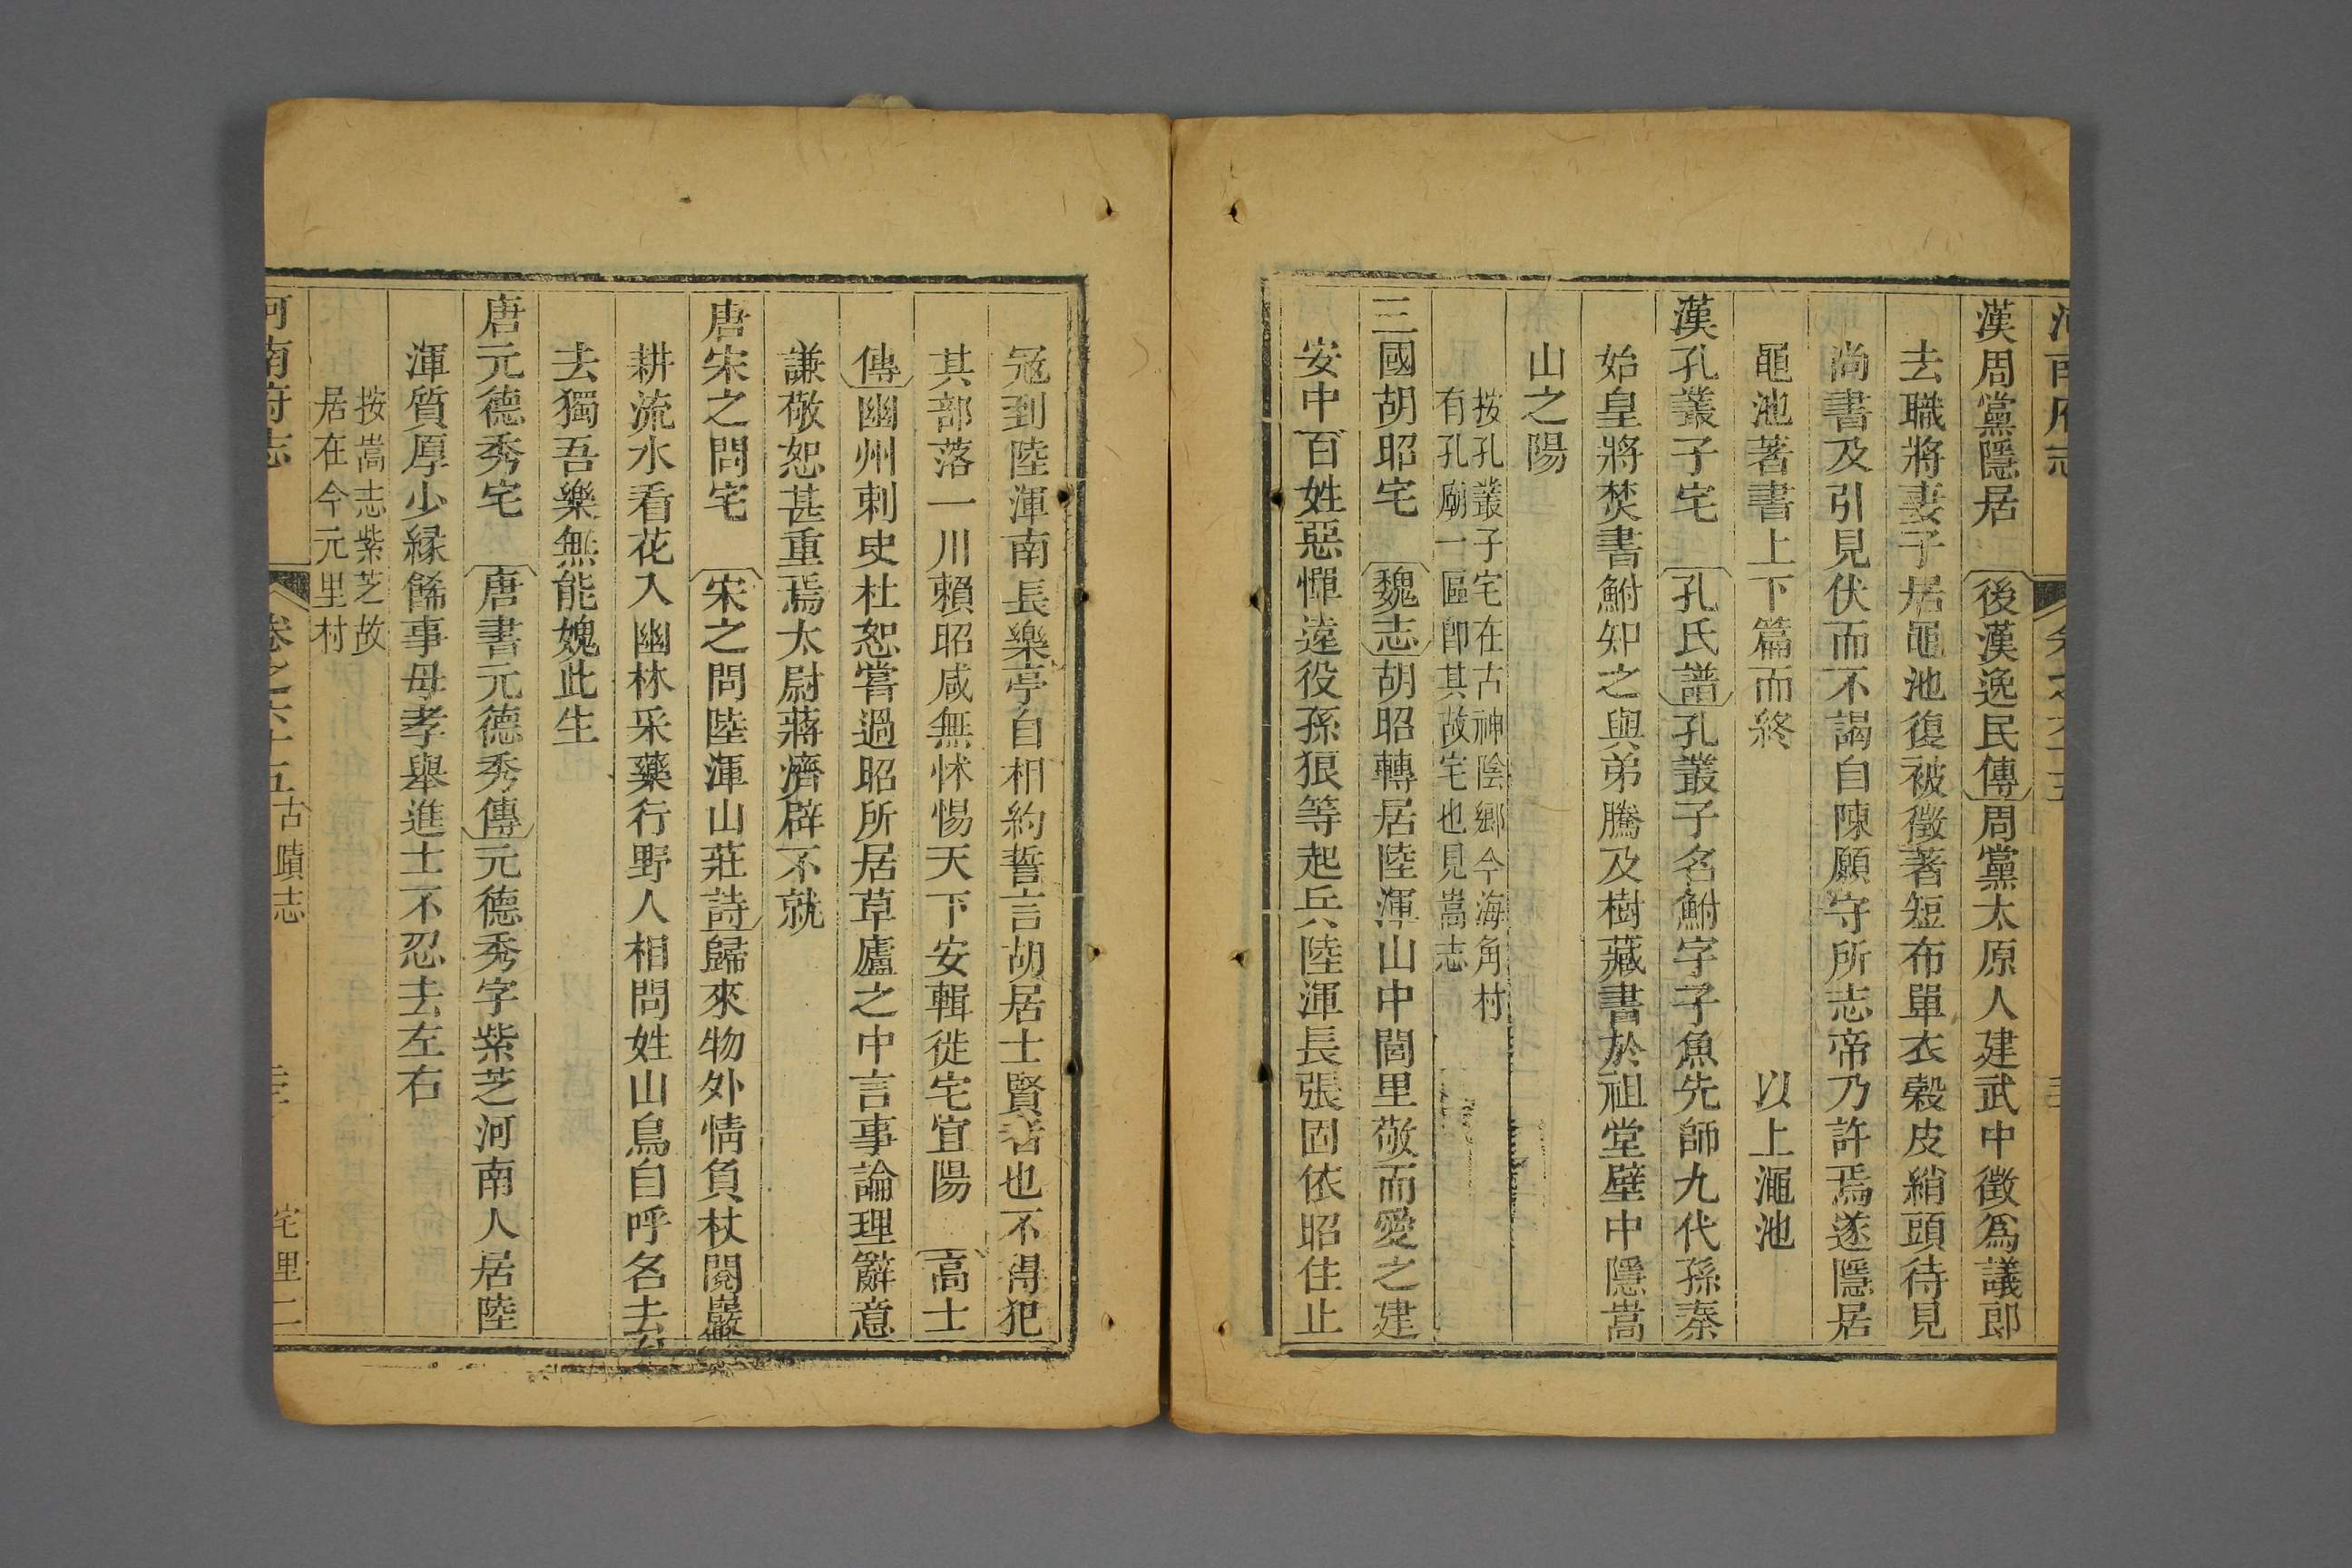 漢周黨隱居　後漢逸民傳周黨太原人建武中徵爲議郎
去職將妻子居黽池復被徵著短布單衣榖皮綃頭待見
尚書及引見伏而不謁自陳願守所志帝乃許焉遂隱居
黽池著書上下篇而終　以上澠池
漢孔叢子宅　孔氏譜孔叢子名鮒字子魚先師九代孫秦
始皇將焚書鮒知之與弟騰及樹藏書於祖堂壁中隱嵩
山之陽
按孔叢子宅在古神陰鄉今海角村
有孔廟一區即其故宅也見嵩志
三國胡昭宅　魏志胡昭轉居陸渾山中閭里敬而愛之建
安中百姓惡憚遠役孫狼等起兵陸渾長張固依昭住止
冦到陸渾南長樂亭自相約誓言胡居士賢者也不得犯
其部落一川賴昭咸無怵惕天下安輯徙宅宜陽　高士
傳幽州刺史杜恕嘗過昭所居草廬之中言事論理辭意
謙敬恕甚重焉太尉蔣濟辟不就
唐宋之問宅　宋之問陸渾山莊詩歸來物外情負杖閱巖
耕流水看花入幽林采藥行野人相問姓山鳥自呼名去
去獨吾樂無能媿此生
唐元德秀宅　唐書元德秀傳元德秀字紫芝河南人居陸
渾質厚少緣餙事母孝舉進士不忍去左右
按嵩志紫芝故
居在今元里村
河南府志　卷之六十五　古蹟志　宅里二